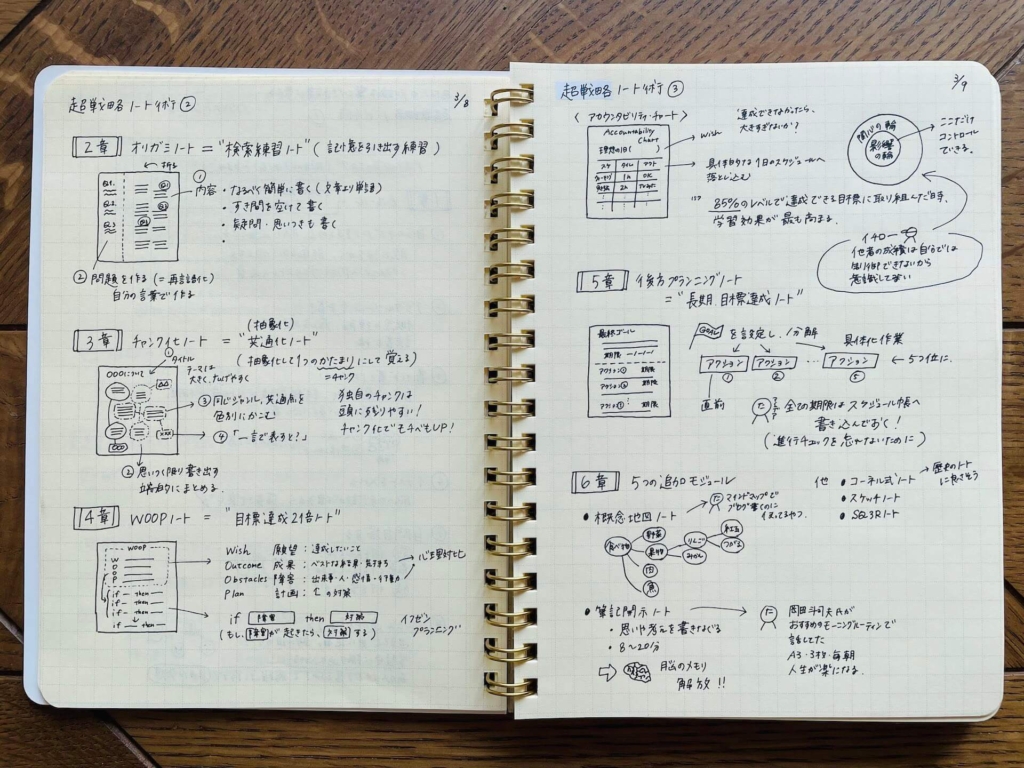 超戦略ノートイボテ ②
3/8
2章 オリガミノート = "検索練習ノート" (記憶を引き出す練習)
Q1.
Q2.
Q3
①
内容 ・なるべく簡単に書く (文章より単語)
・すき間を空けて書く
・疑問・思いつきも書く
・
② 問題を作る (= 再言語化)
自分の言葉で作る
(抽象化)
3章 チャンク化ノート = "共通化ノート"
(抽象化して1つのかたまりにして覚える)
=チャンク
①タイトル
テーマは
大きく、広げやすく
○○○について
③ 同じジャンル、共通点を
色別にかこむ
④ 「一言で表すと?」
② 思いつく限り書き出す
独自のチャンクは
頭に残りやすい!
チャンク化でモチベもUP!
4章 WOOPノート = "目標達成2倍ノート"
WOOP
W
O
O
P
if – then
if – then
if – then
if – then
Wish 願望 : 達成したいこと
Outcome 成果 : ベストな結果・気持ち
Obstacles 障害 : 出来事・人・感情・
Plan 計画 : 上の対策
心理対比
if 障害 then 対策
(もし、障害が起きたら、対策する)
イフゼン
プランニング
超戦略ノートイボテ ③
3/9
〈 アカウンタビリティ・チャート 〉
Accountability
Chart
理想の1日 ( )
Wish
達成できなかったら、
大きすぎないか?
具体的な1日のスケジュールへ
落とし込む
⇨ 85%のレベルで達成できる目標に取り組んだ時、
学習効果が最も高まる。
関心の輪
影響の輪
ここだけ
コントロール
できる。
イチロー
他者の成績は自分では
制御できないから
意識してない
5章 後方プランニングノート
= "長期目標達成ノート"
最終ゴール
期限 –/–/–/
アクション① 期限
アクション② 期限
アクション⑤ 期限
Goal を設定し、分解
具体化作業
アクション アクション … アクション ← 5つ位に.
① ② ⑤
直前
た 全ての期限はスケジュール帳へ
書き込んでおく!
(進行チェックを忘れないために)
6章 5つの追加モジュール
● 概念地図ノート
た マインドマップで
ブログ書くのに
使ってるやつ.
食べ物
野菜
果物
肉
魚
りんご
みかん
紅玉
つがる
他 ● コーネル式ノート
● スケッチノート
● SQ3Rノート
歴史のノート
に使えそう
● 筆記開示ノート
・思いや考えを書きなぐる
・8〜20分
⇨ 脳のメモリ
解放 !!
た 岡田斗司夫氏が
おすすめのモーニングルーティンで
話してた
A3・3枚・毎朝
人生が楽になる.